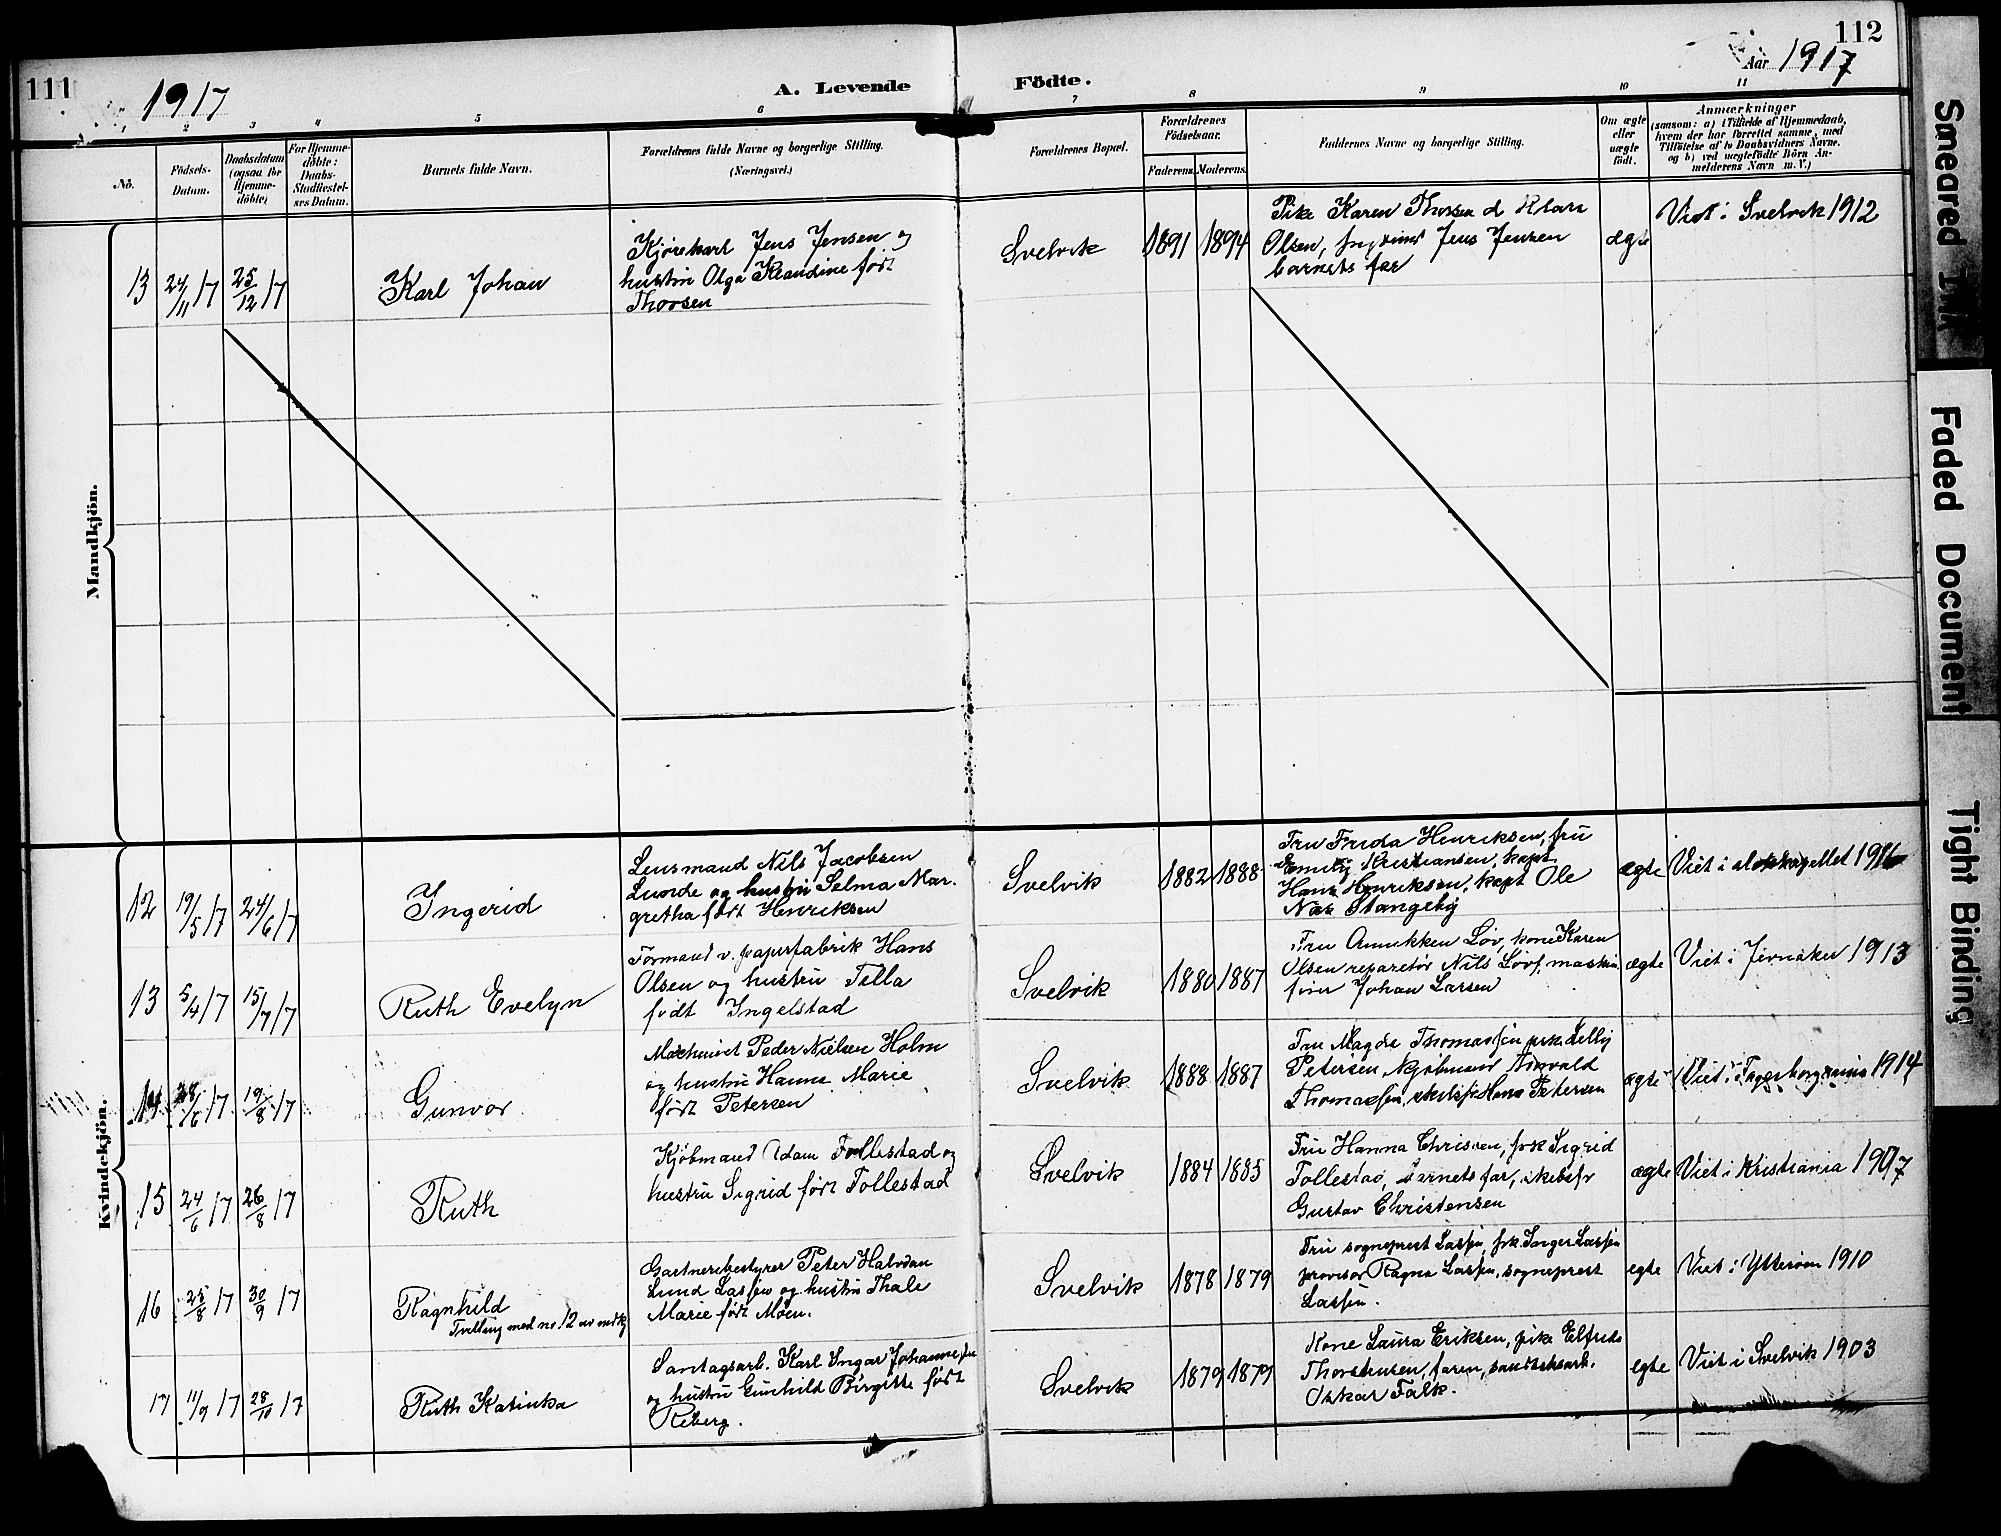 111
1917
A. Levende
Födte.
112
Aar 1917
1 2 3 4 5 6 7 8 9 10 11
No.
Födsels-
Datum.
Daabsdatum
(ogsaa for
Hjemme-
döbte)
For Hjemme-
döbte:
Daabs-
Stadfæstel-
ses Datum.
Barnets fulde Navn.
Forældrenes fulde Navne og borgerlige Stilling.
(Næringsvei.)
Forældrenes Bopæl.
Forældrenes
Födselsaar.
Faderens. Moderens.
Faddernes Navne og borgerlige Stilling.
Om ægte
eller
uægte
födt.
Anmærkninger
(saasom: a) i Tilfælde af Hjemmedaab,
hvem der har forrettet samme, med
Tilföielse af to Daabsvidners Navne.
og b) ved uægtefödte Börn An-
melderens Navn m. V.)
Mandkjön.
13
24/11 17
25/12 17
Karl Johan
Kjørekarl Jens Jensen og
hustru Olga Klaudine født
Thorsen
Svelvik
1891 1894
Pike Karen Thorsen Klara
Olsen, Jens Jensen
barnets far
ægte
Viet i Svelvik 1912
Kvindekjön.
12
19/5 17
24/6 17
Ingerid
Lensmand Nils Jacobsen
Lunde og hustru Selma Mar-
gretha født Henriksen
Svelvik
1882 1888
Fru Frida Henriksen, fru
Emely Kristiansen, kapt
Hans Henriksen, kapt Ole
Stangeby
ægte
Viet i slotskapellet 1916
13
5/4 17
15/7 17
Ruth Evelyn
Formand v. papirfabrik Hans
Olsen og hustru Tilla
født Ingelstad
Svelvik
1880 1887
Fru Annikken Løv, kone Karen
Olsen reparatør Nils Løv, maskin
fører Johan Larsen
ægte
Viet i Jevnaker 1913
14
28/6 17
19/8 17
Gunvor
Maskinist Peder Nielsen Holm
og hustru Hanna Marie
født Petersen
Svelvik
1888 1887
Fru Magda Thomassen frk. Lelly
Petersen, kjøbmand
Thomassen, Hans Petersen
ægte
Viet i 1914
15
24/6 17
26/8 17
Ruth
Kjøbmand Adam Follestad og
hustru Sigrid født Follestad
Svelvik
1884 1885
Fru Hanna Chrissen, frk Sigrid
Follestad, barnets far, skibsfr
Gustav Christensen
ægte
Viet i Kristiania 1907
16
25/8 17
30/9 17
Ragnhild
Tvilling med no. 12 av mdkj
Gartnerebestyrer Peter Halvdan
Lund Lassen og hustru Thale
Marie født Moen.
Svelvik
1878 1879
Fru sogneprest Lassen, frk. Inger Lassen
provisor Ragna Lassen, sogneprest
Lassen.
egte
Viet i Ytterøen 1910
17
11/9 17
28/10 17
Ruth Katinka
Santagsarb. Karl Ingar
og hustru Gunhild Birgitte født
Reberg.
Svelvik
1879 1879
Kone Laura Eriksen, pike Elfrida
Thorstensen, faren, sandtaksarb.
Oskar Falk.
egte
Viet i Svelvik 1903
Smeared Ink
Faded Document
Tight Binding